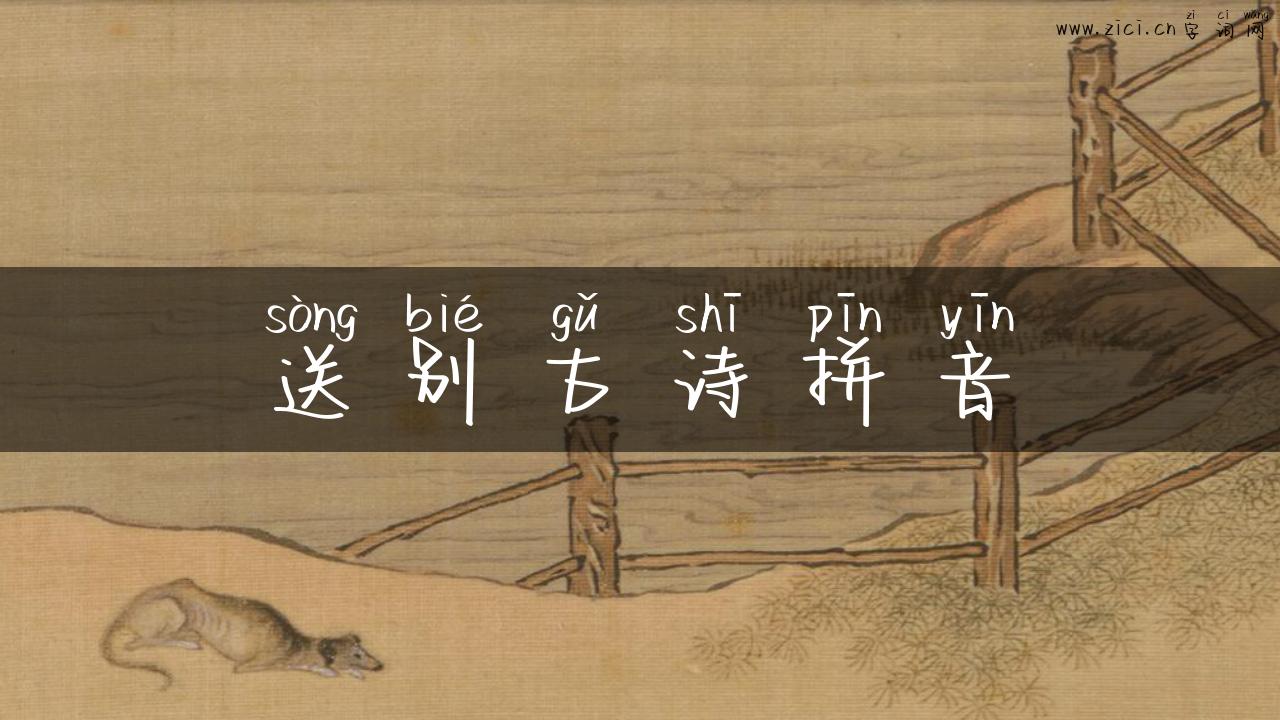 zi ci wang
www.zici.cn 字词网
sòng bié gǔ shī pīn yīn
送别古诗拼音